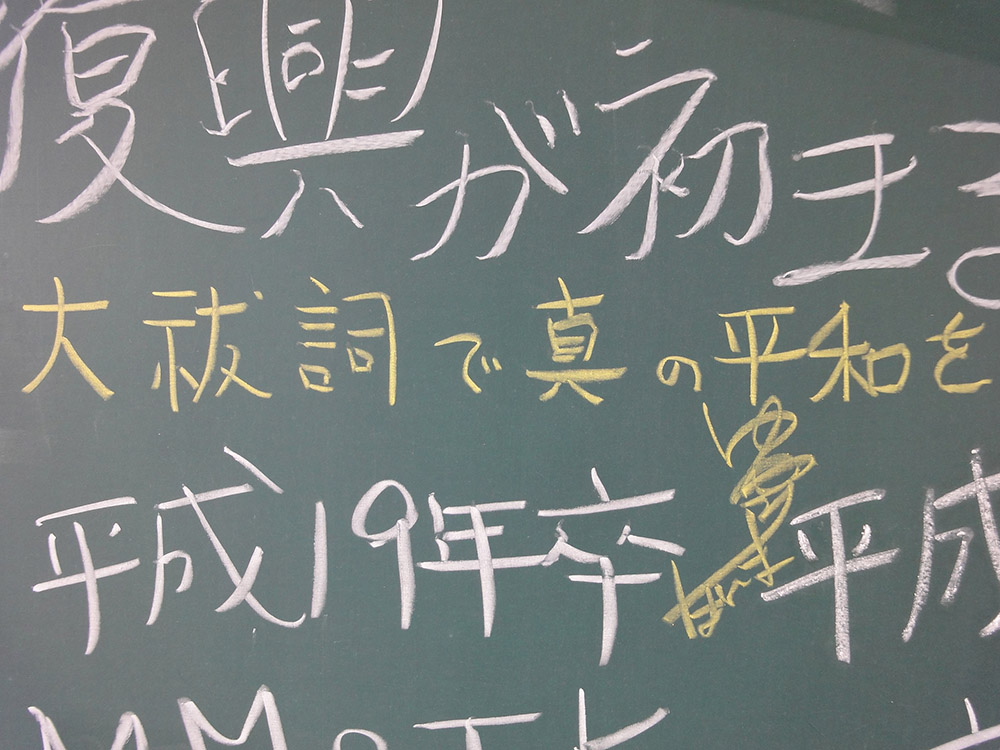 復興が初まる
大祓詞で真の平和を
平成19年卒 平成